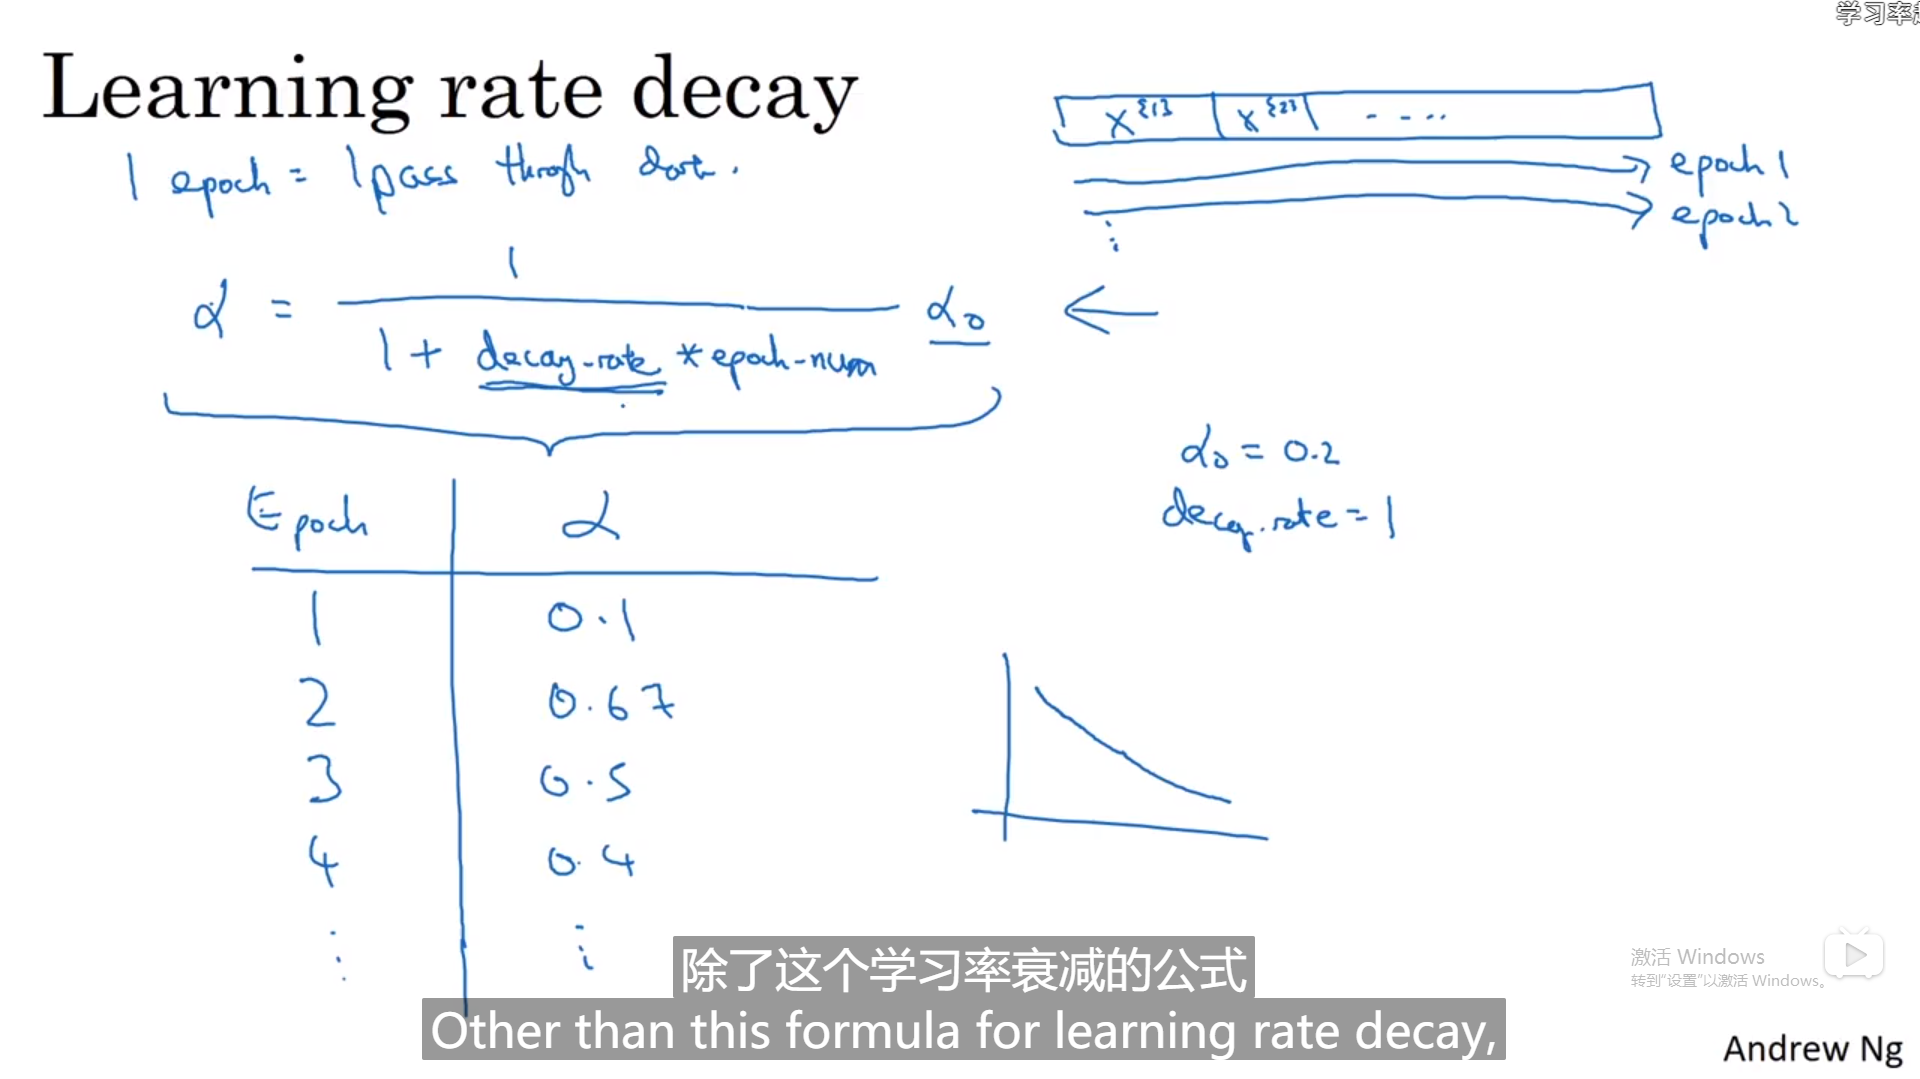 学习率
Learning rate decay
1 epoch = 1 pass through data.
X^{1} X^{2} - - - ..
epoch 1
epoch 2
⋮
α = 1 / (1 + decay-rate * epoch-num) α₀ ←
α₀ = 0.2
decay.rate = 1
Epoch | α
1 | 0.1
2 | 0.67
3 | 0.5
4 | 0.4
⋮ | ⋮
除了这个学习率衰减的公式
Other than this formula for learning rate decay,
激活 Windows
转到“设置”以激活 Windows。
Andrew Ng